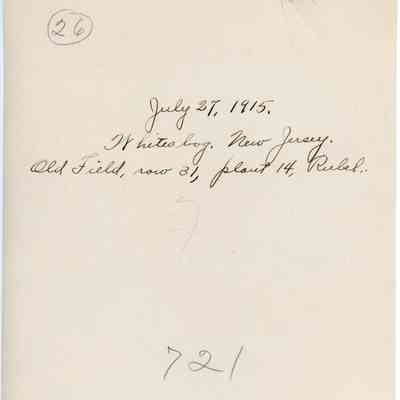 26
July 27, 1915.
Whitesbog. New Jersey.
Old Field, row 31, plant 14, Rubel.
721